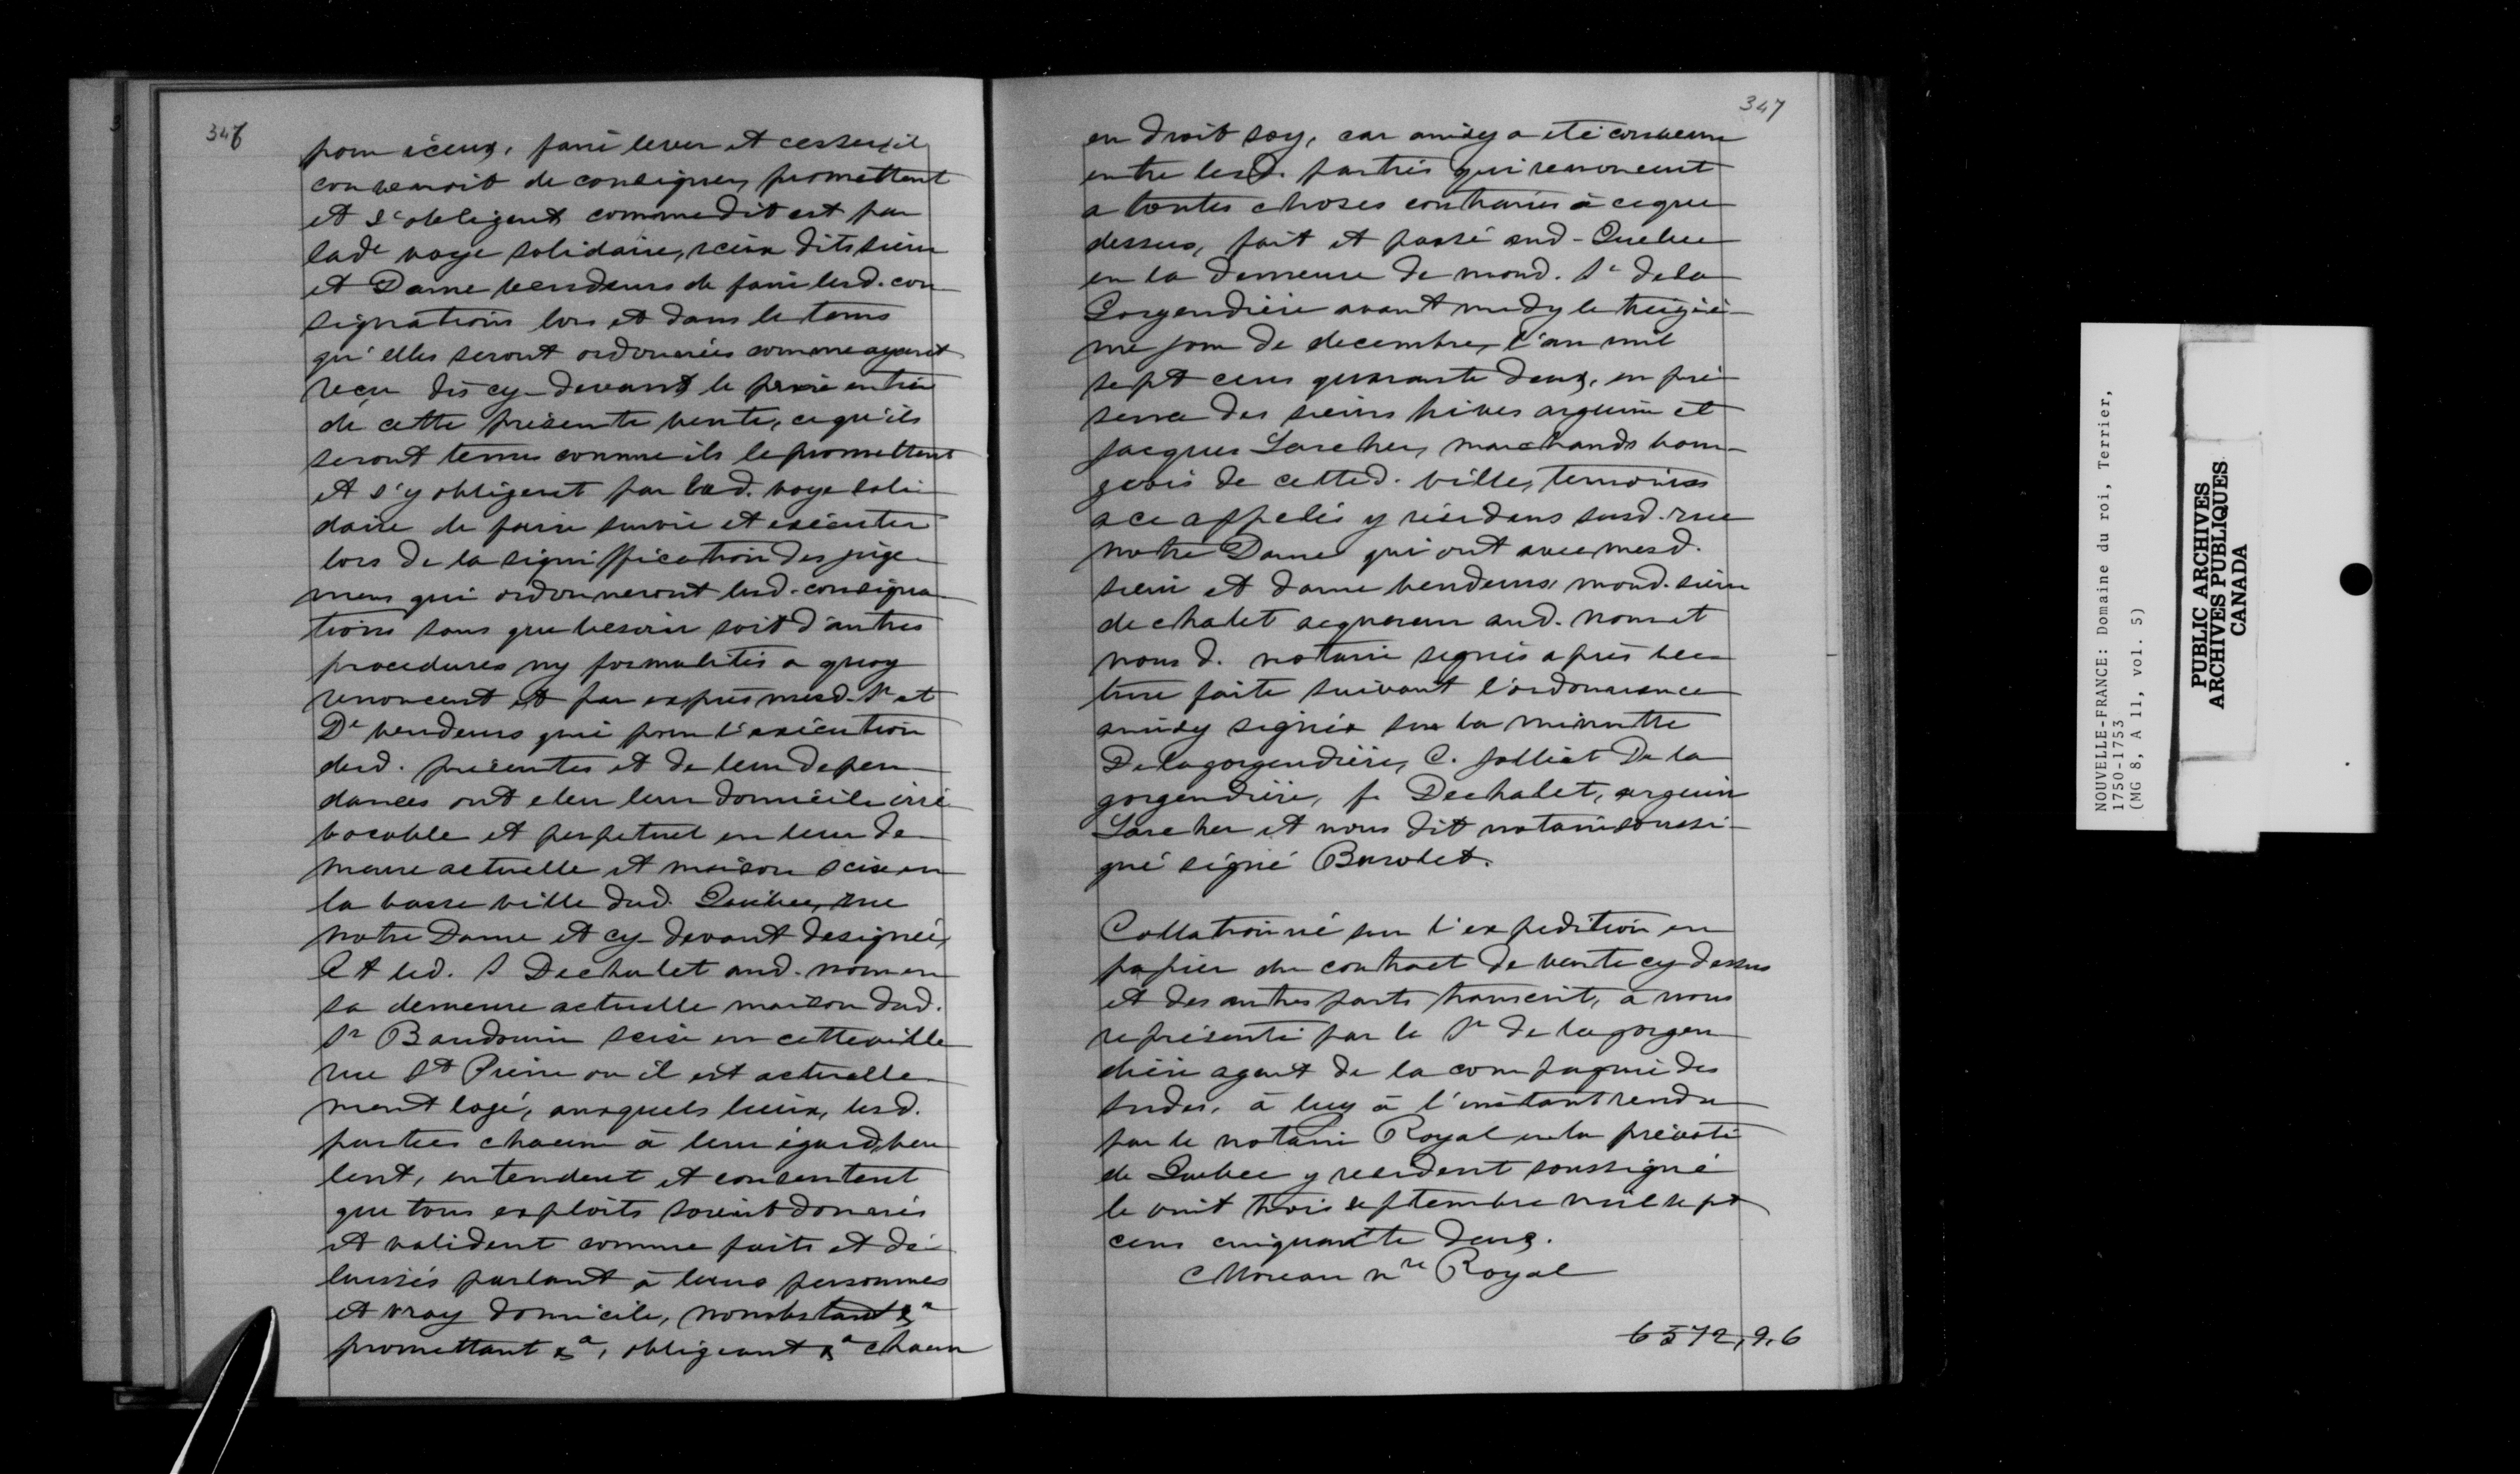 346
pour iceux, faire lever et cesser, il
convenoit de consigner, promettent
et s'obligent comme dit est par
lade voye solidaire, iceux dits sieur
et Dame vendeurs de faire lesd. con
signations lors et dans le tems
qu'elles seront ordonnées comme ayant
reçu dès cy-devant le prix entier
de cette présente vente, ce qu'ils
seront tenus comme ils le promettent
et s'y obligent par lad. voye soli
daire de faire suivre et exécuter
lors de la signiffication des juge
mens qui ordonneront lesd. consigna
tions sans que besoin soit d'autres
procedures ny formalités a quoy
renoncent et par exprès mesd. Sr et
De vendeurs qui pour l'exécution
desd. présentes et de leur depen
dances ont eleu leur domicile irré
vocable et perpetuel en leur de
meure actuelle et maison scise en
la basse ville dud. Québec, rue
notre Dame et cy-devant designée,
Et led. S Dechalet aud. nom en
sa demeure actuelle maison dud.
Sr Baudouin scise en cette ville
rue St Pierre ou il est actuelle
ment logé, auxquels lieux, lesd.
parties chacun à leur égard, veu
lent, entendent et consentent
que tous exploits soient donnés
et valident comme faits et dé
laissés parlant à leurs personnes
et vray domicile, nonobstant &a
promettant &a, obligeant &a chacun
347
en droit soy, car ainsy a eté convenu
entre lesd. parties qui renoncent
a toutes choses contraires à ce que
dessus, fait et passé aud-Quebec
en la demeure de mond. Sr dela
Gorgendière avant midy le treiziè-
me jour de decembre, l'an mil
sept cens quarante deux, en pré
sence des sieurs hives arguin et
Jacques Larcher, marchands bour-
geois de cetted. ville, temoins
a ce appelés y résidans susd. rue
notre Dame qui ont avec mesd.
sieur et dame vendeurs, mond. sieur
de chalet acquereur aud. nom et
nous d. notaire signés après lec
ture faite suivant l'ordonnance
ainsy signés sur la minutte
Delagorgendière, C. Jolliet De la
gorgendière, f. Dechalet, arguin
Larcher et nous dit notaire soussi-
gné signé Barolet.
Collationné sur l'expedition en
papier du contract de vente cy dessus
et des autres parts transcrit, à nous
représenté par le Sr de lagorgen
dière agent de la compagnie des
Indes, à luy à l'instant rendu
par le notaire Royal en la prévosté
de Quebec y resident soussigné
le vint trois septembre mil sept
cens cinquante deux.
CMoreau nre Royal
6572,9.6
NOUVELLE-FRANCE: Domaine du roi, Terrier,
1750-1753
(MG 8, A 11, vol. 5)
PUBLIC ARCHIVES
ARCHIVES PUBLIQUES
CANADA